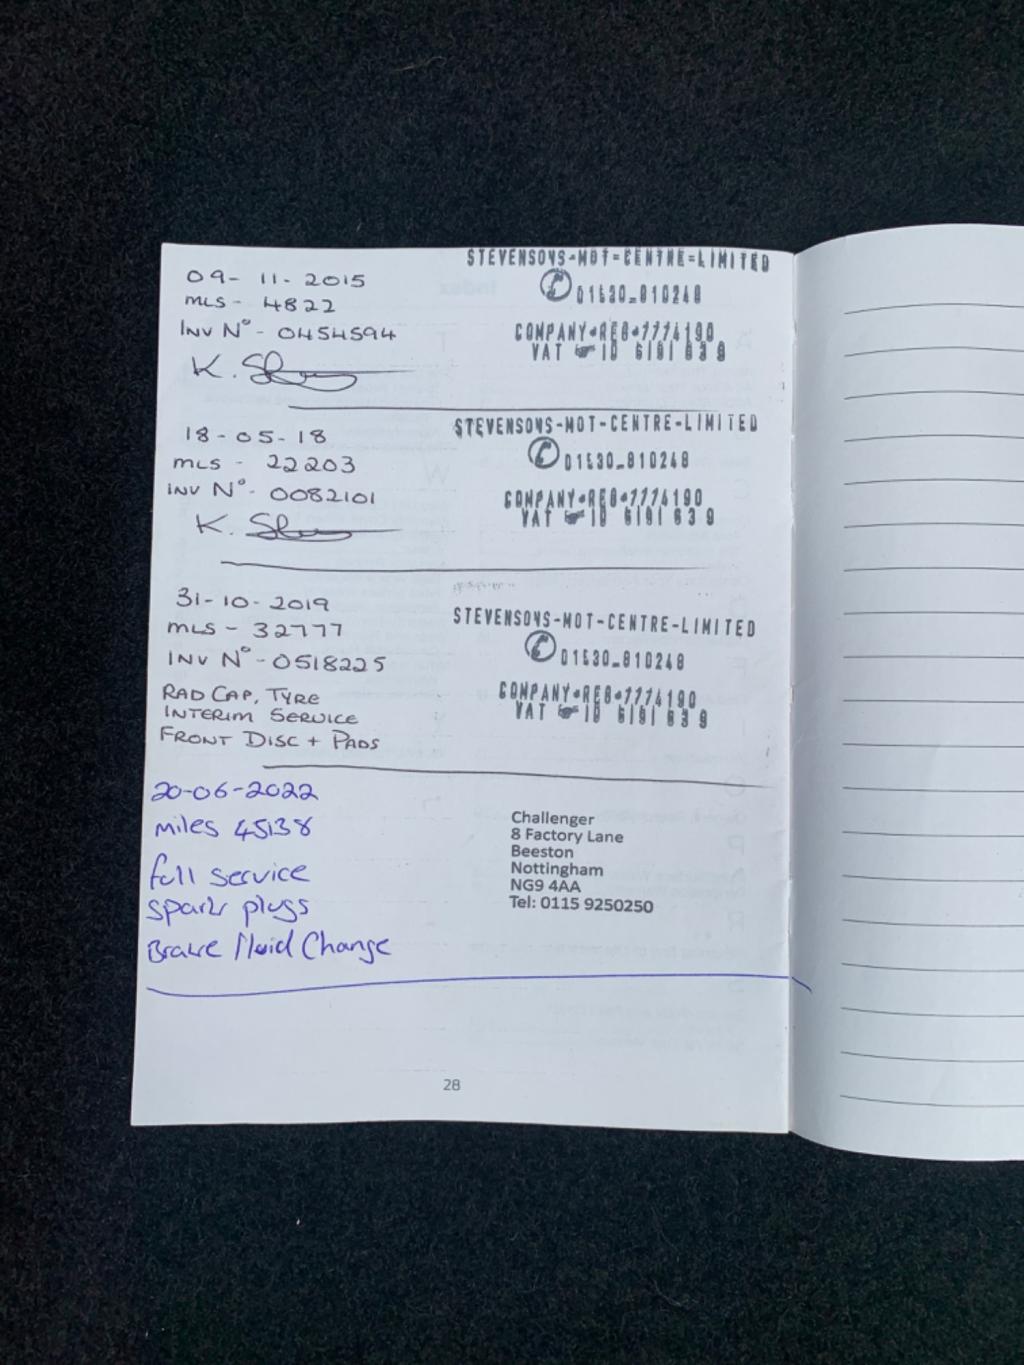 09-11-2015
MLS - 4822
INV No - 0454594
K.
STEVENSONS-MOT-CENTRE-LIMITED
01530-810248
COMPANY•REG•7774190
VAT ID 6191 639
18-05-18
MLS - 22203
INV No - 0082101
K.
STEVENSONS-MOT-CENTRE-LIMITED
01530-810248
COMPANY•REG•7774190
VAT ID 6191 639
31-10-2019
MLS - 32777
INV No - 0518225
RAD CAP, TYRE
INTERIM SERVICE
FRONT DISC + PADS
STEVENSONS-MOT-CENTRE-LIMITED
01530-810248
COMPANY•REG•7774190
VAT ID 6191 639
20-06-2022
miles 45138
full service
spark plugs
Brake fluid Change
Challenger
8 Factory Lane
Beeston
Nottingham
NG9 4AA
Tel: 0115 9250250
28